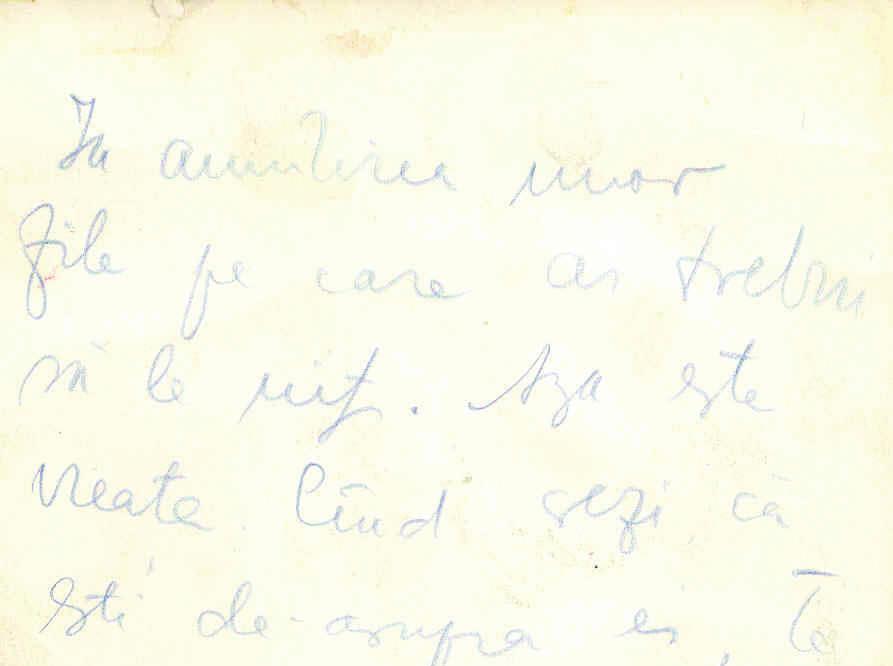 In amintirea unor
zile pe care ai trebui
să le uiți. Așa este
vieața. Cînd crezi că
ești de-asupra ei, te